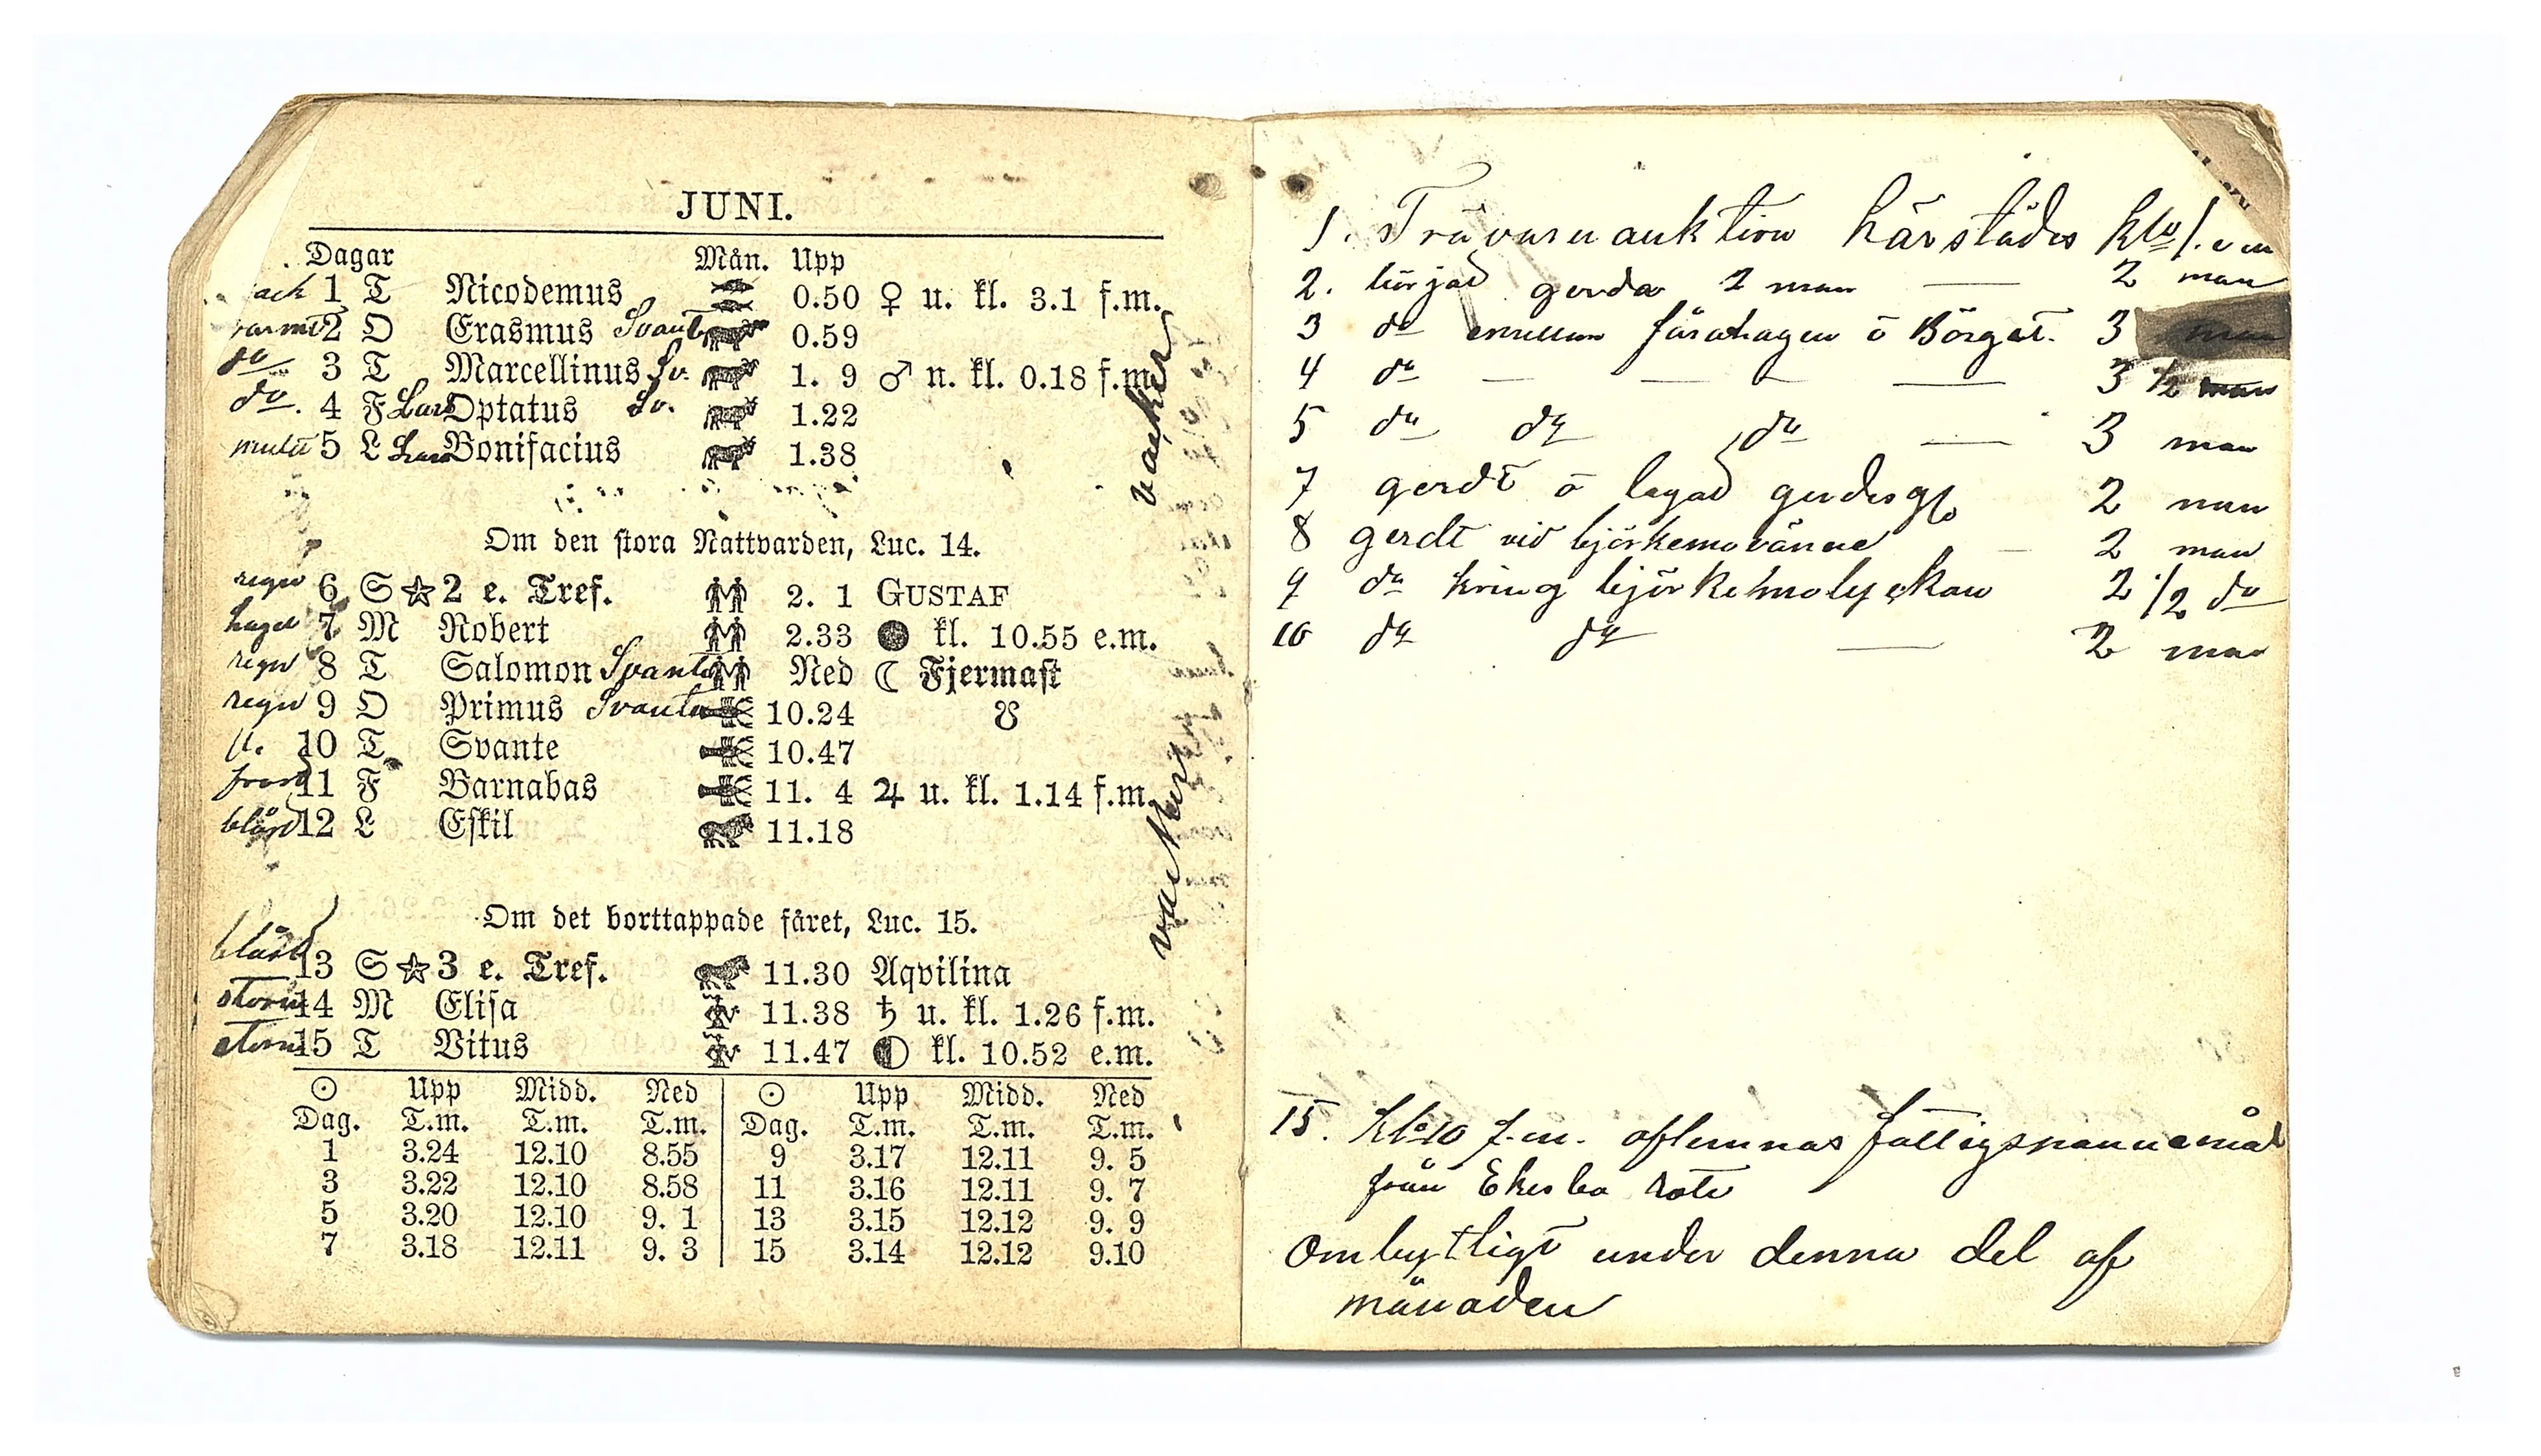 JUNI.
Dagar Mån. Upp
1 T Nicodemus 0.50 ♀ u. kl. 3.1 f.m.
varmt 2 O Erasmus Svante 0.59
do 3 T Marcellinus Sv. 1. 9 ♂ n. kl. 0.18 f.m.
do. 4 F Lars Optatus Sv. 1.22
mulit 5 L Lars Bonifacius 1.38
vacker
Om den stora Nattvarden, Luc. 14.
regn 6 S ☆ 2 e. Tref. 2. 1 GUSTAF
hagel 7 M Robert 2.33 ● kl. 10.55 e.m.
regn 8 T Salomon Svante Ned ☾ Fjermast
regn 9 O Primus Svante 10.24 ☋
10 T Svante 10.47
frost 11 F Barnabas 11. 4 ♃ u. kl. 1.14 f.m.
blåst 12 L Eskil 11.18
vackert
Om det borttappade fåret, Luc. 15.
blåst 13 S ☆ 3 e. Tref. 11.30 Aqvilina
storm 14 M Elisa 11.38 ♄ u. kl. 1.26 f.m.
storm 15 T Vitus 11.47 ◐ kl. 10.52 e.m.
☉ Upp Midd. Ned ☉ Upp Midd. Ned
Dag. T.m. T.m. T.m. Dag. T.m. T.m. T.m.
1 3.24 12.10 8.55 9 3.17 12.11 9. 5
3 3.22 12.10 8.58 11 3.16 12.11 9. 7
5 3.20 12.10 9. 1 13 3.15 12.12 9. 9
7 3.18 12.11 9. 3 15 3.14 12.12 9.10
1. Trävaruauktion härstädes klo 1. e m
2. börjad gerda 2 man — 2 man
3 do emellan fårahagen o Börgat. 3 man
4 do — — — — 3 1/2 man
5 do do do — 3 man
7 gerdt o lagad 2 man
8 gerdt vid — 2 man
9 do kring björkemolyckan 2 1/2 do
10 do do — 2 man
15. Klo 10 f.m. aflemnas
från Ekesbo rote
Ombytligt under denna del af
månaden